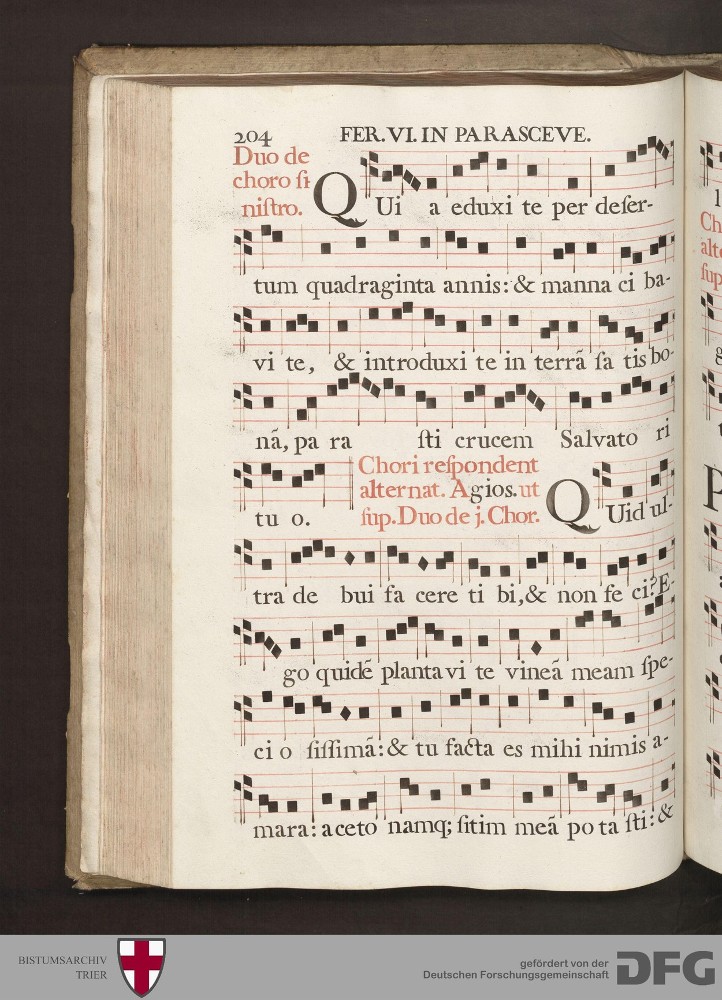 204 FER. VI. IN PARASCEVE.
Duo de
choro ſi
niſtro.
QUi a eduxi te per deſer-
tum quadraginta annis: & manna ci ba-
vi te, & introduxi te in terrã ſa tis bo-
nã, pa ra ſti crucem Salvato ri
tu o.
Chori reſpondent
alternat. Agios. ut
ſup. Duo de j. Chor.
QUid ul-
tra de bui fa cere ti bi, & non fe ci? E-
go quidẽ plantavi te vineã meam ſpe-
ci o ſiſſimã: & tu facta es mihi nimis a-
mara: aceto namq; ſitim meã po ta ſti: &
BISTUMSARCHIV
TRIER
gefördert von der
Deutschen Forschungsgemeinschaft
DFG